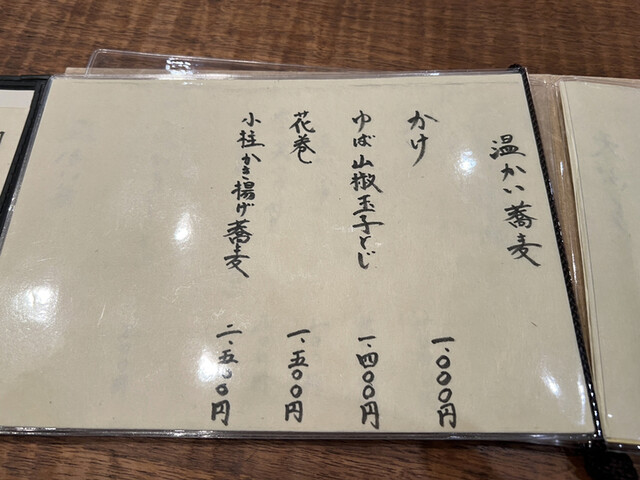 温かい蕎麦
かけ 一、〇〇〇円
ゆば山椒玉子とじ 一、四〇〇円
花巻 一、五〇〇円
小柱かき揚げ蕎麦 二、五〇〇円